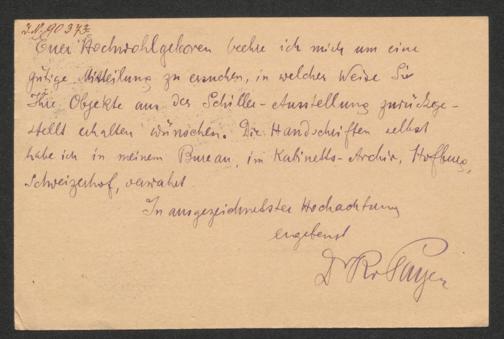 J.N. 90373
Euer Hochwohlgeboren beehre ich mich um eine
gütige Mitteilung zu ersuchen, in welcher Weise Sie
Ihre Objekte aus der Schiller-Ausstellung zurückge-
stellt erhalten wünschen. Die Handschriften selbst
habe ich in meinem Bureau, im Kabinetts-Archiv, Hofburg,
Schweizerhof, verwahrt
In ausgezeichnetster Hochachtung
ergebenst
Dr R. v. Payer